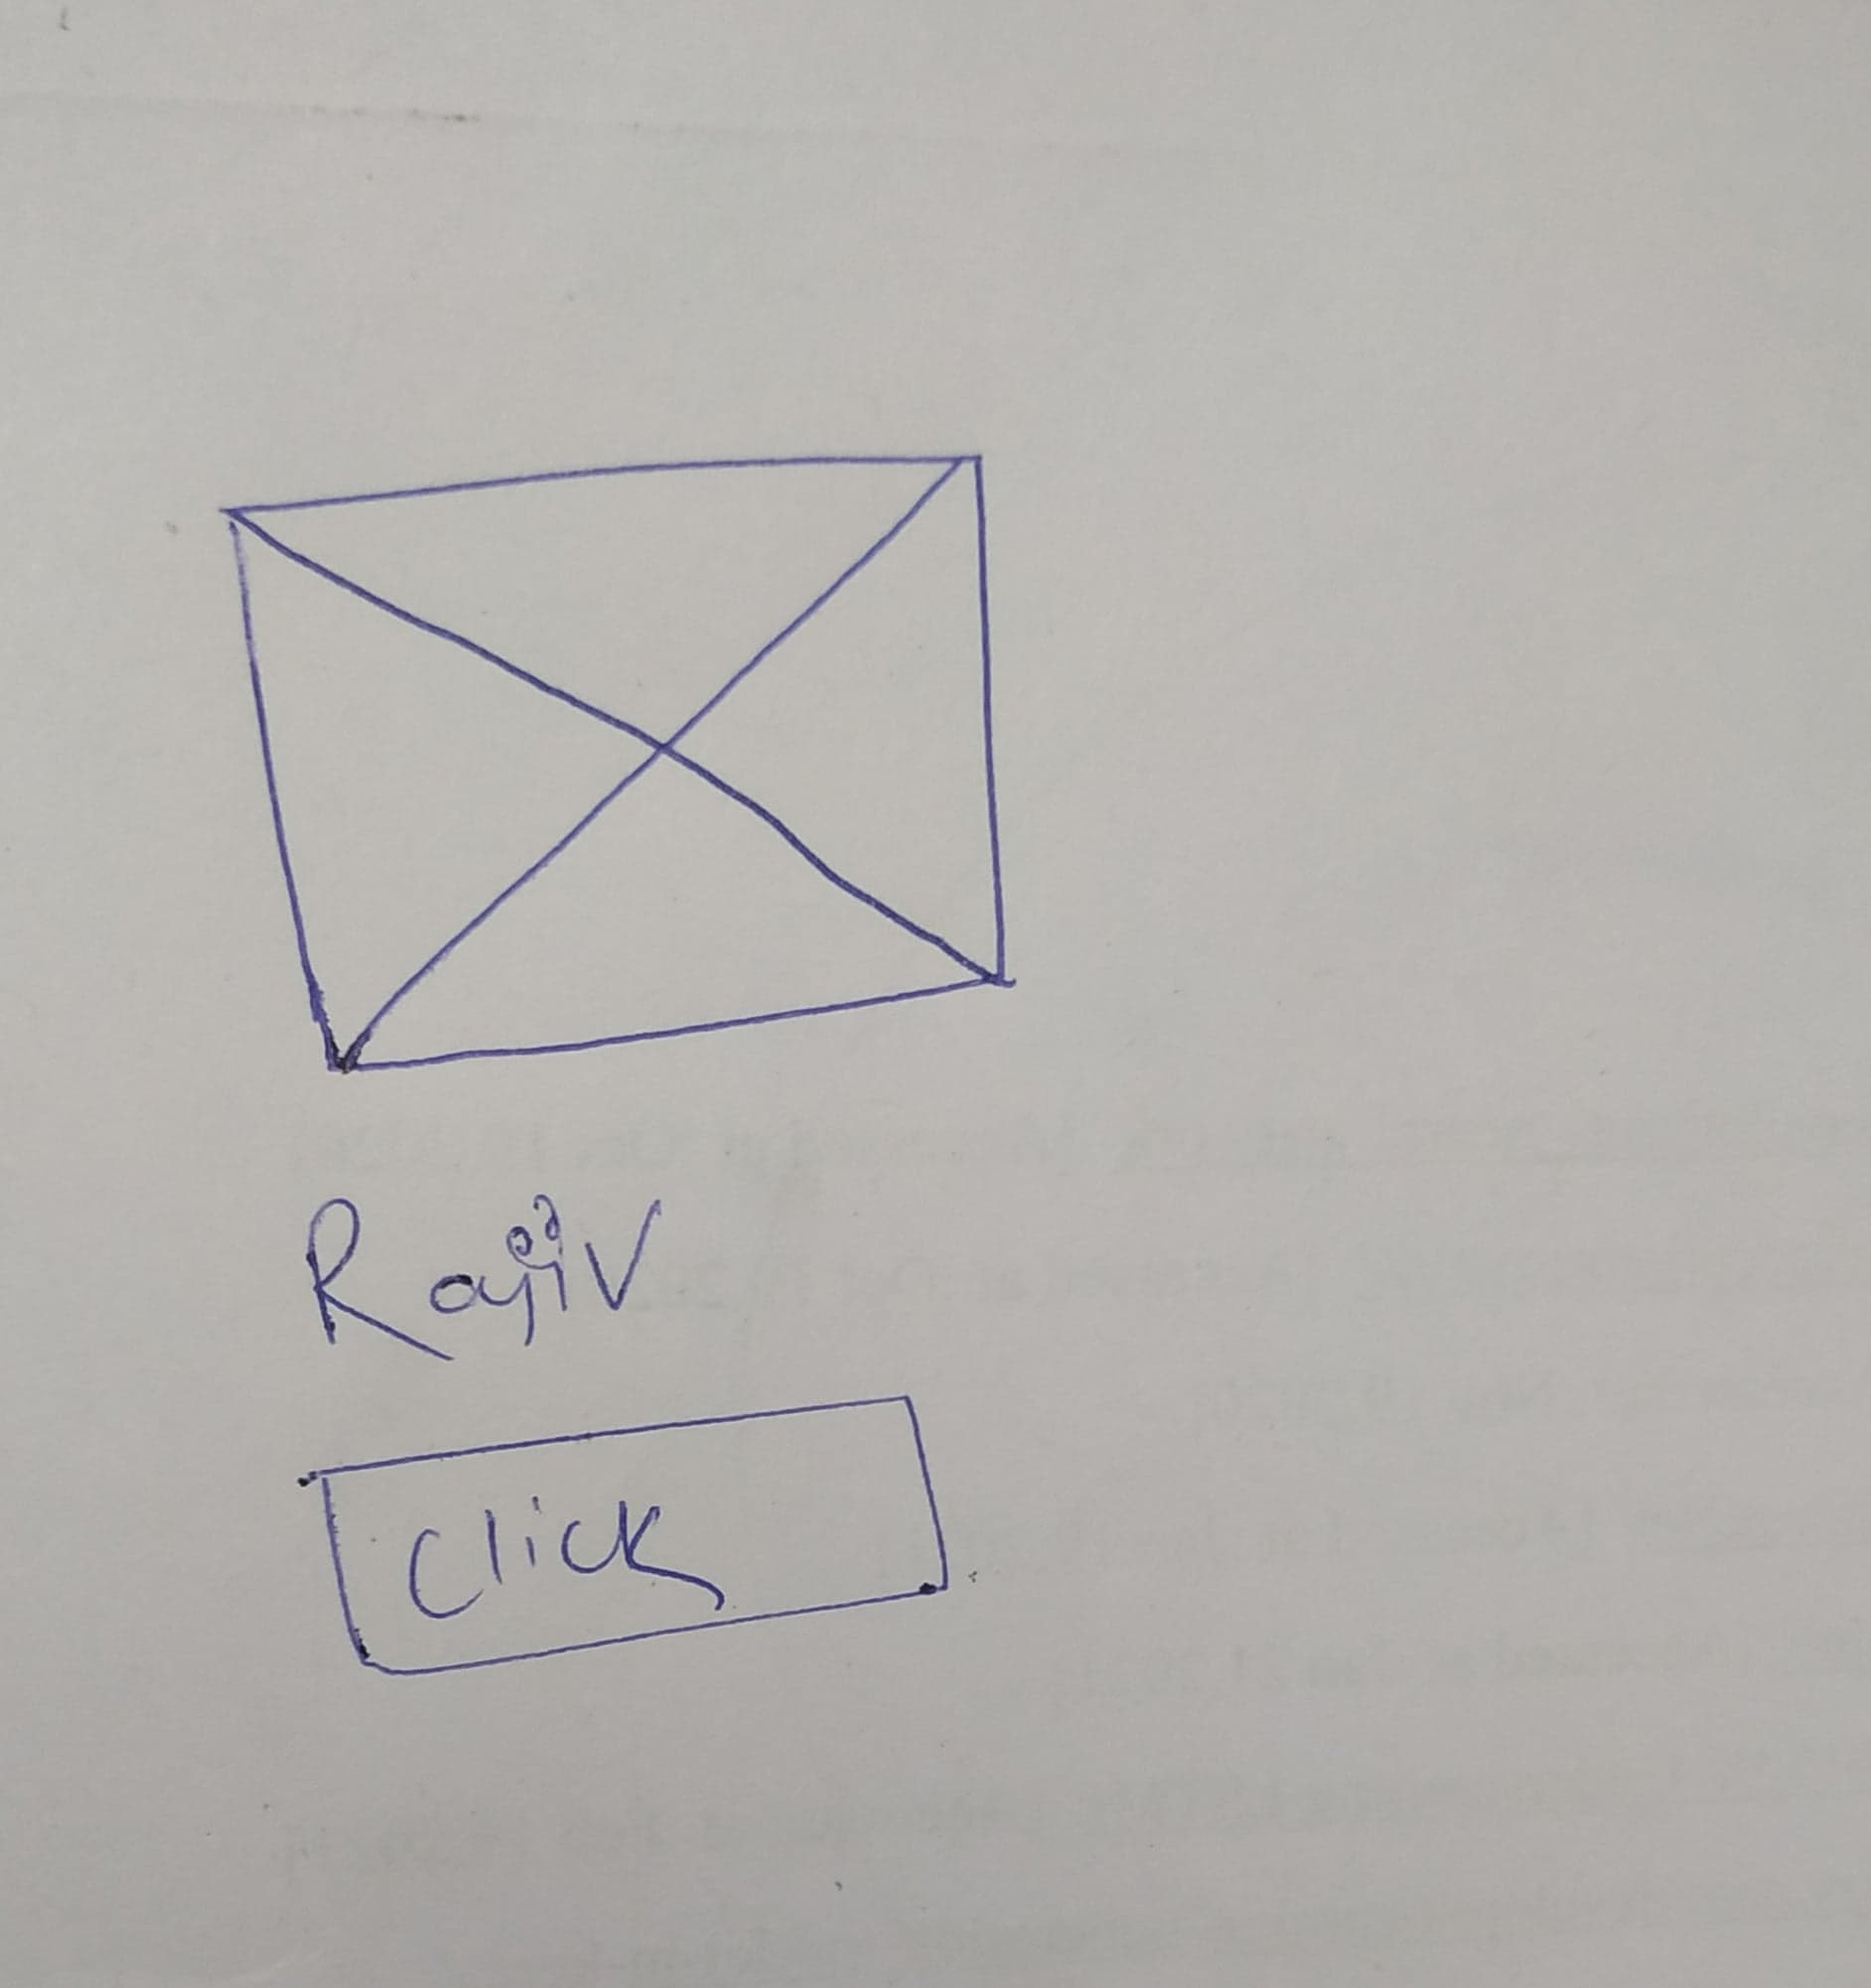 Rajiv
Click